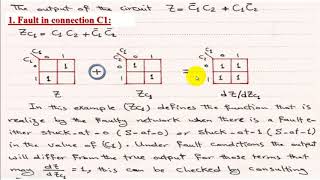 The output of the circuit Z = C̄1 C2 + C1 C̄2
1. Fault in connection C1:
ZC1 = C1 C2 + C̄1 C̄2
C1 C1 C1
C2 0 1 C2 0 1 C2 0 1
0 1 + 0 1 = 0 1 1
1 1 1 1 1 1 1
Z ZC1 dZ/dZC1
In this example (ZC1) defines the function that is
realize by the faulty network when there is a fault e-
ither stuck-at-0 (S-at-0) or stuck-at-1 (S-at-1) in
the value of (C1). Under fault conditions the output
will differ from the true output for those terms that
may dZ/dZC1 = 1, this can be checked by consulting